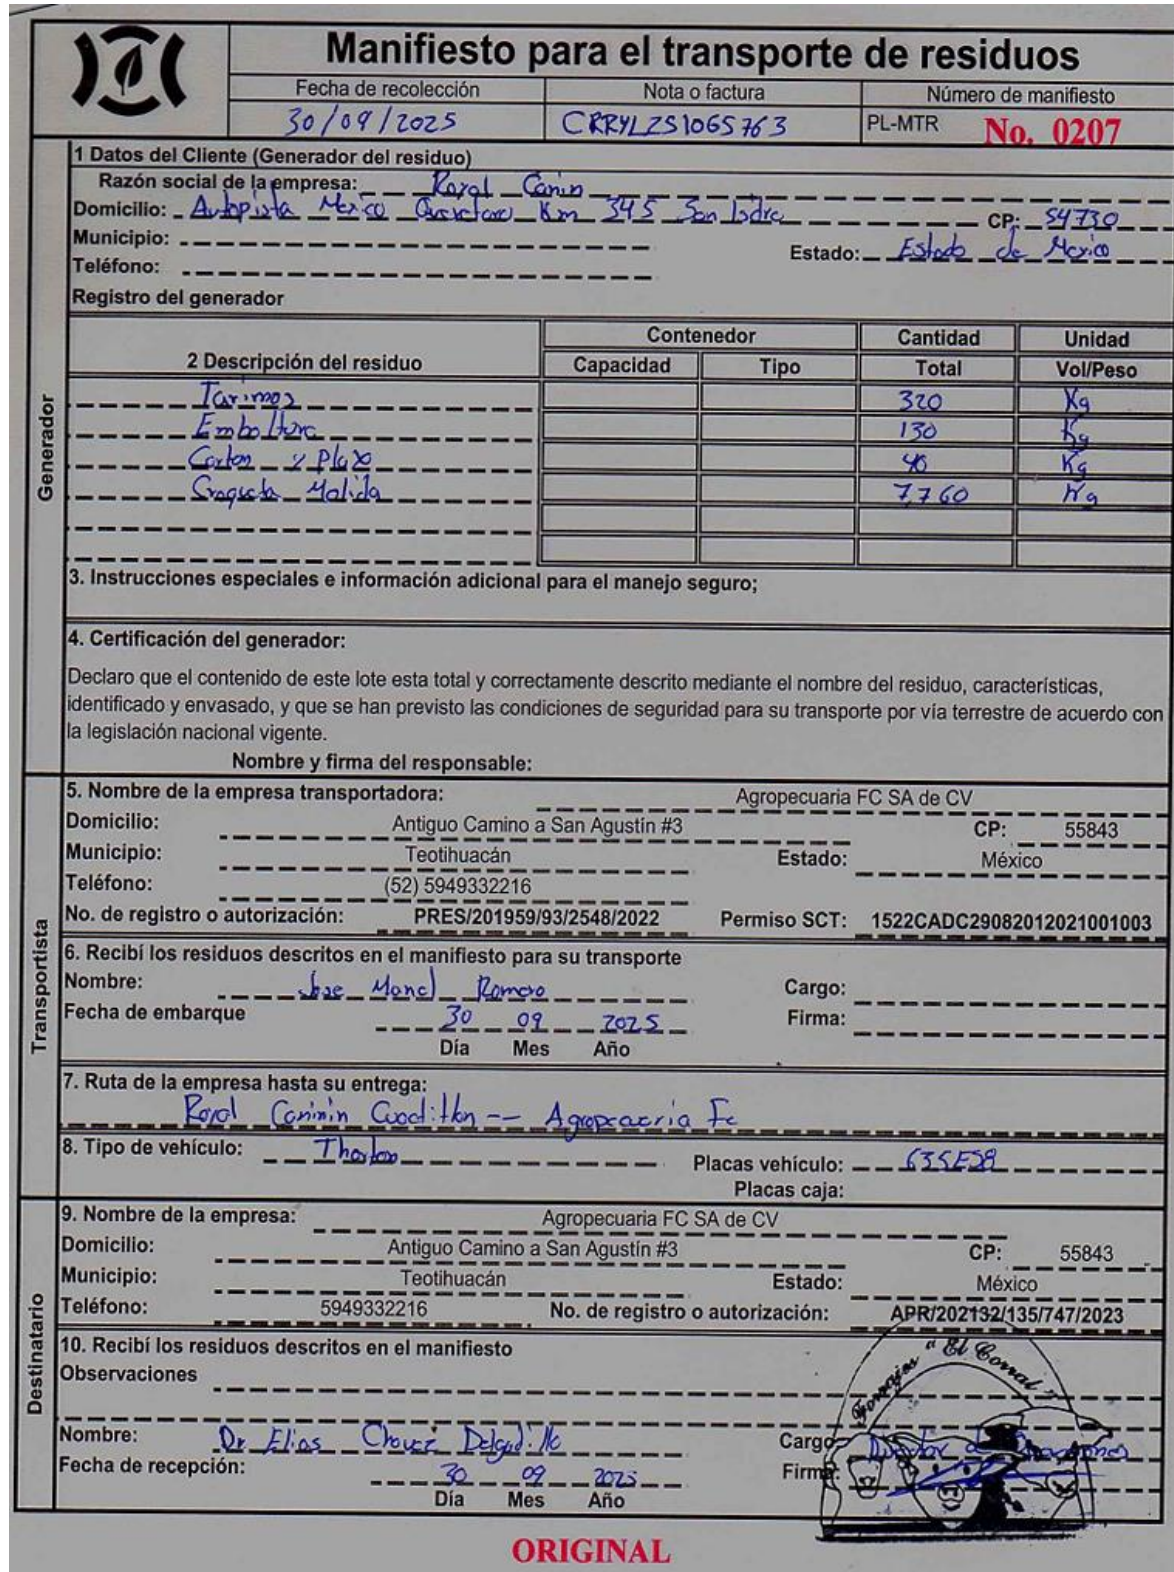 Manifiesto para el transporte de residuos
Fecha de recolección Nota o factura Número de manifiesto
30/09/2025 CRRYLZS1065763 PL-MTR No. 0207
1 Datos del Cliente (Generador del residuo)
Razón social de la empresa: Royal Canin
Domicilio: Autopista Mexico Queretaro Km 345 San Isidro CP: 54730
Municipio: Estado: Estado de Mexico
Teléfono:
Registro del generador
Contenedor Cantidad Unidad
2 Descripción del residuo Capacidad Tipo Total Vol/Peso
Tarimas 320 Kg
Emboltura 130 Kg
Carton y 40 Kg
Croqueta Molida 7,760 Kg
Generador
3. Instrucciones especiales e información adicional para el manejo seguro;
4. Certificación del generador:
Declaro que el contenido de este lote esta total y correctamente descrito mediante el nombre del residuo, características,
identificado y envasado, y que se han previsto las condiciones de seguridad para su transporte por vía terrestre de acuerdo con
la legislación nacional vigente.
Nombre y firma del responsable:
Transportista
5. Nombre de la empresa transportadora: Agropecuaria FC SA de CV
Domicilio: Antiguo Camino a San Agustín #3 CP: 55843
Municipio: Teotihuacán Estado: México
Teléfono: (52) 5949332216
No. de registro o autorización: PRES/201959/93/2548/2022 Permiso SCT: 1522CADC29082012021001003
6. Recibí los residuos descritos en el manifiesto para su transporte
Nombre: Jose Manel Romero Cargo:
Fecha de embarque 30 09 2025 Firma:
Día Mes Año
7. Ruta de la empresa hasta su entrega:
Royal Caninin -- Agropecuaria Fc
8. Tipo de vehículo: Placas vehículo:
Placas caja:
Destinatario
9. Nombre de la empresa: Agropecuaria FC SA de CV
Domicilio: Antiguo Camino a San Agustín #3 CP: 55843
Municipio: Teotihuacán Estado: México
Teléfono: 5949332216 No. de registro o autorización: APR/202132/135/747/2023
10. Recibí los residuos descritos en el manifiesto
Forrajes "El Corral"
Observaciones
Nombre: Dr Elias Chavez Delgadillo Cargo: Director de
Fecha de recepción: 30 09 2025 Firma:
Día Mes Año
ORIGINAL